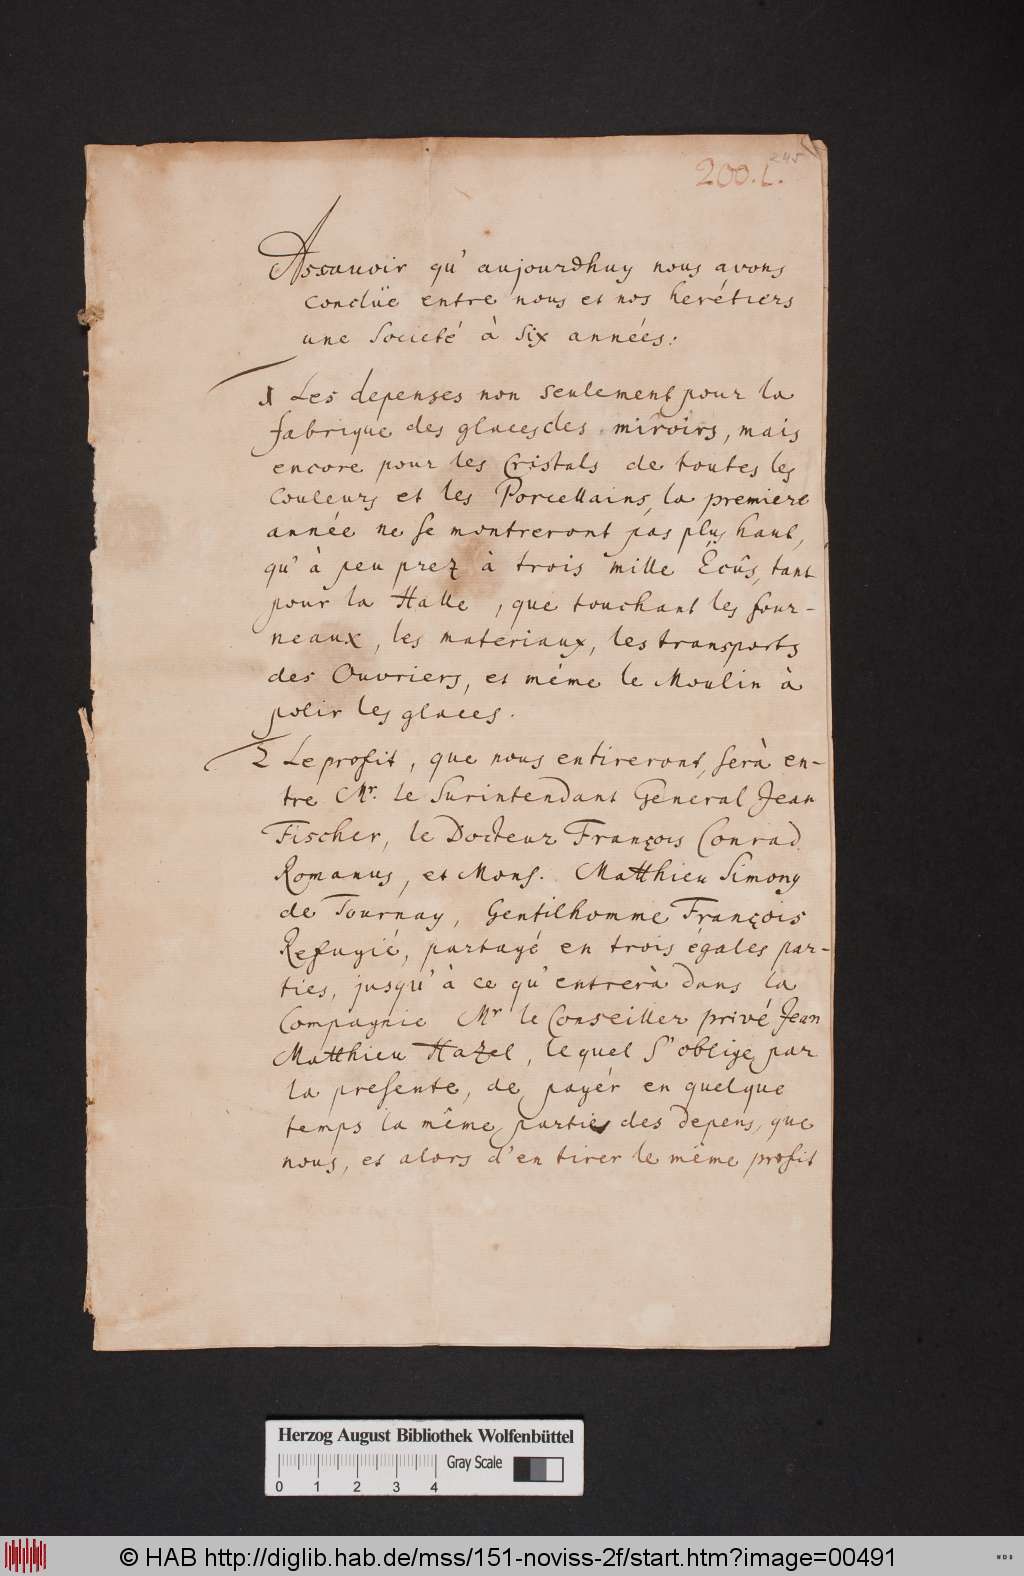 245
200. L.
Assavoir qu' aujourdhuy nous avons
conclüe entre nous et nos herétiers
une Societé à six années:
1 Les depenses non seulement pour la
fabrique des glaces des miroirs, mais
encore pour les Cristals de toutes les
couleurs et les Porcellains, la premiere
année ne se montreront pas plus haut,
qu' à peu prez à trois mille Écûs, tant
pour la Halle, que touchant les four-
neaux, les materiaux, les transports
des Ouvriers, et méme le Moulin à
polir les glaces.
2 Le profit, que nous entireront, serà en-
tre Mr. le Surintendant General Jean
Fischer, le Docteur François Conrad
Romanus, et Mons. Matthieu Simony
de Tournay, Gentilhomme François
Refugié, partagé en trois égales par-
ties, jusqu' à ce qu' entrerà dans la
Compagnie Mr le Conseiller privé Jean
Matthieu Hazel, lequel s' oblige par
la presente, de payér en quelque
temps la même parties des depens, que
nous, et alors d' en tirer le méme profit
Herzog August Bibliothek Wolfenbüttel
Gray Scale
0 1 2 3 4
© HAB http://diglib.hab.de/mss/151-noviss-2f/start.htm?image=00491